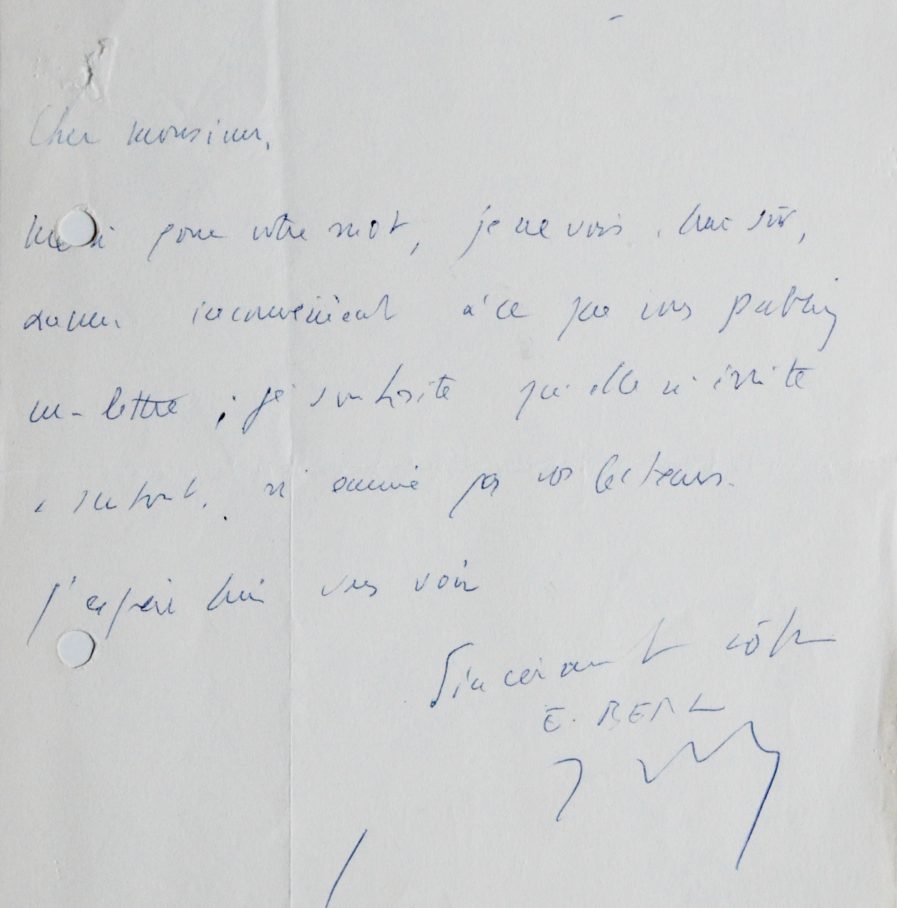 Cher Monsieur,
Merci pour votre mot, je ne vois, bien sûr,
aucun inconvénient à ce que vous publiiez
ma lettre ; je souhaite qu'elle n'irrite
, surtout, ni ennuie pas vos lecteurs.
J'espère bien vous voir
Sincèrement vôtre
E. BERL